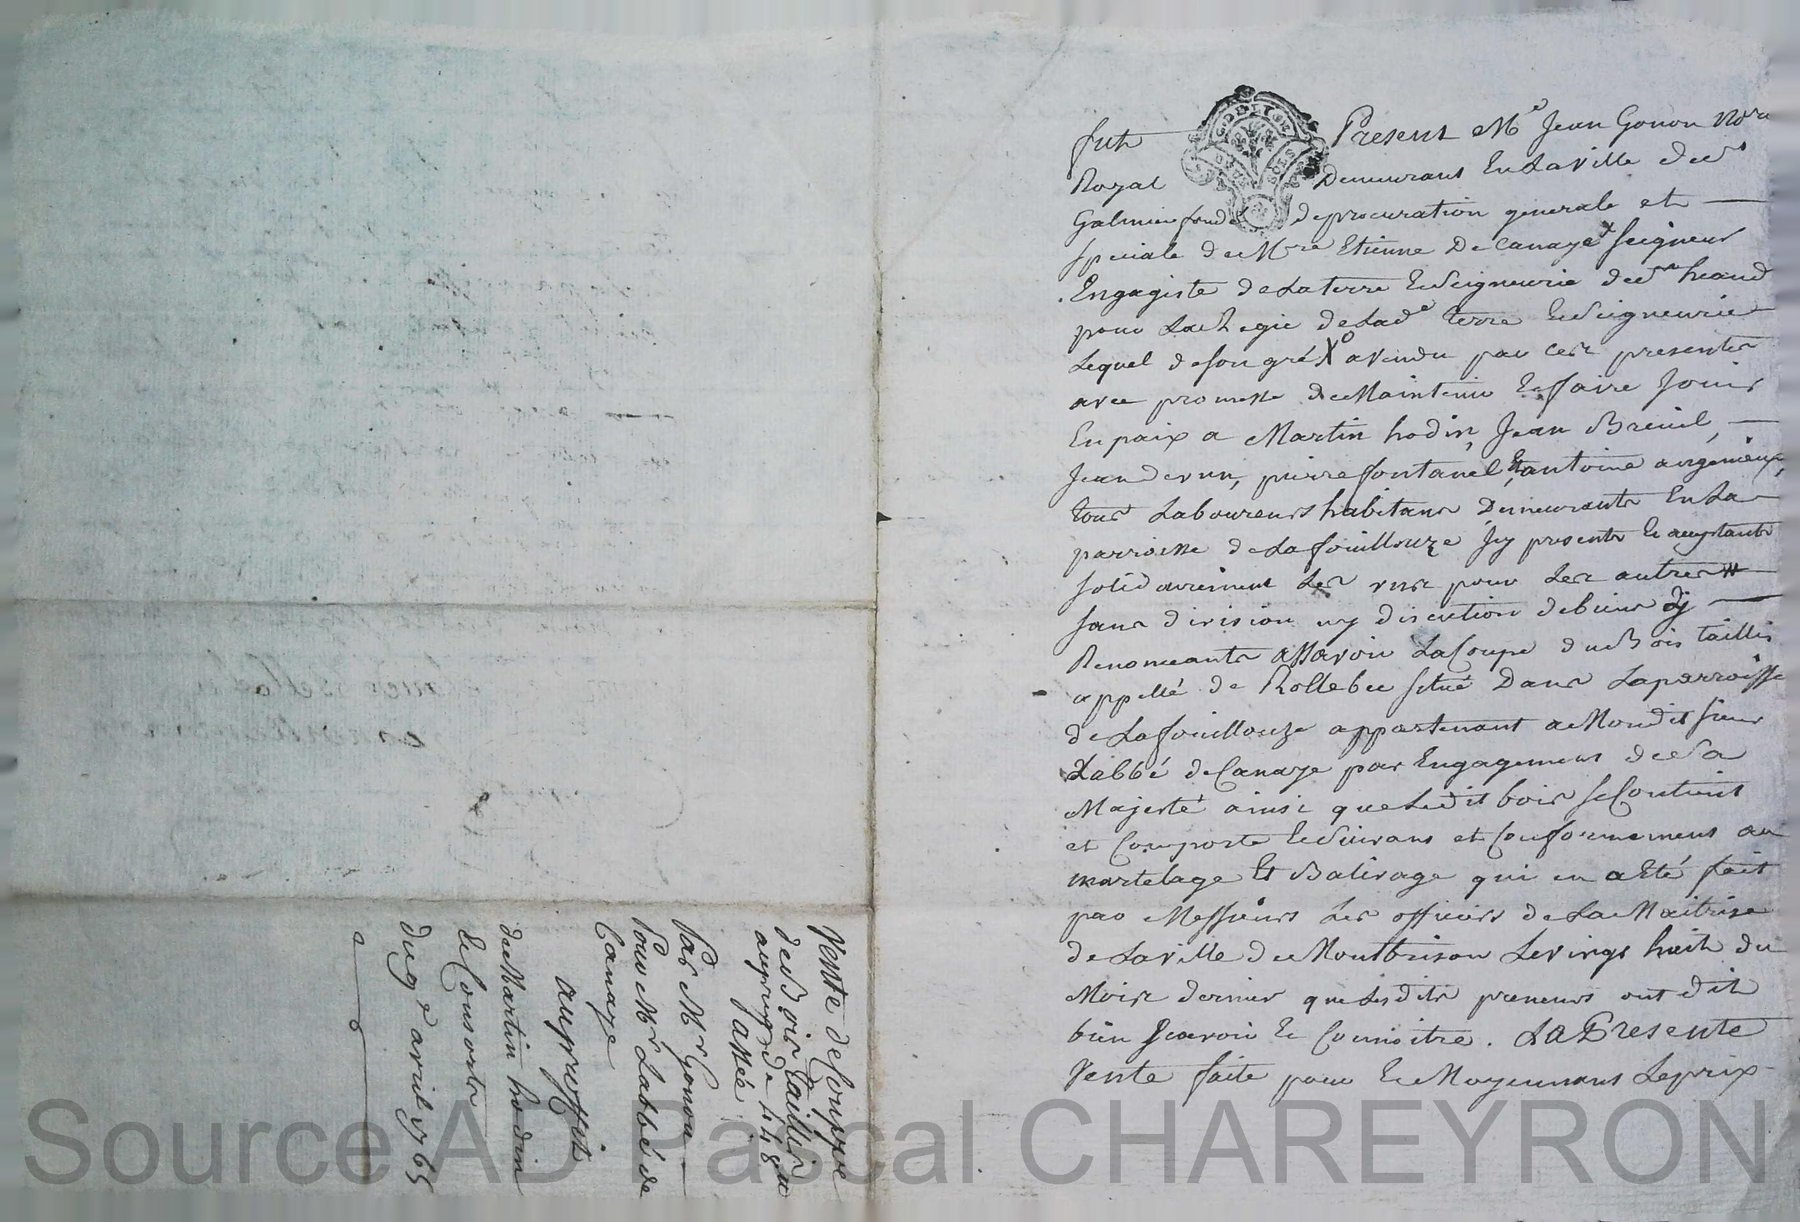 Vente de Couppe
des Bois Taillis
au prix de 448 #
Passée
Par Mr Gonon
Pour Mr Labbé de
Canaye
au proffit
de Martin hodin
& Consorts
du 9e avril 1765
fut Present Me Jean Gonon No.re
Royal Demeurant En La ville de St
Galmier fondé de procuration generale et
speciale de M.re Etienne De Canaye x seigneur
Engagiste de La terre Et Seigneurie de St heand
pour La Regie de Lad.e terre Et Seigneurie
Lequel de son gré a vendu par ces presentes
avec promesse de Maintenir Et faire Jouir
En paix a Martin hodin, Jean Breuil,
Jean devun, pierre fontanel Et antoine angenieux,
tous Laboureurs habitans Demeurants En La
parroisse de Lafouillouze Jcy presents Et acceptants
solidairement Les uns pour Les autres
sans division ny discution de biens dy
Renonceants assavoir La Coupe du Bois taillis
appellé de Rollebec situé Dans La parroisse
de Lafouillouze appartenant a Mondit sieur
Labbé de Canaye par Engagement de Sa
Majesté ainsi que Ledit bois se Contient
et Comporte Et Suivant et Conformement au
martelage Et Balivage qui en a Eté fait
par Messieurs Les officiers de La Maitrise
de La ville de Montbrison Le vingt huit du
Mois dernier que Lesdits preneurs ont dit
bien scavoir Et Connoitre. La Presente
Vente faite pour Et Moyennant Le prix
Source AD Pascal CHAREYRON